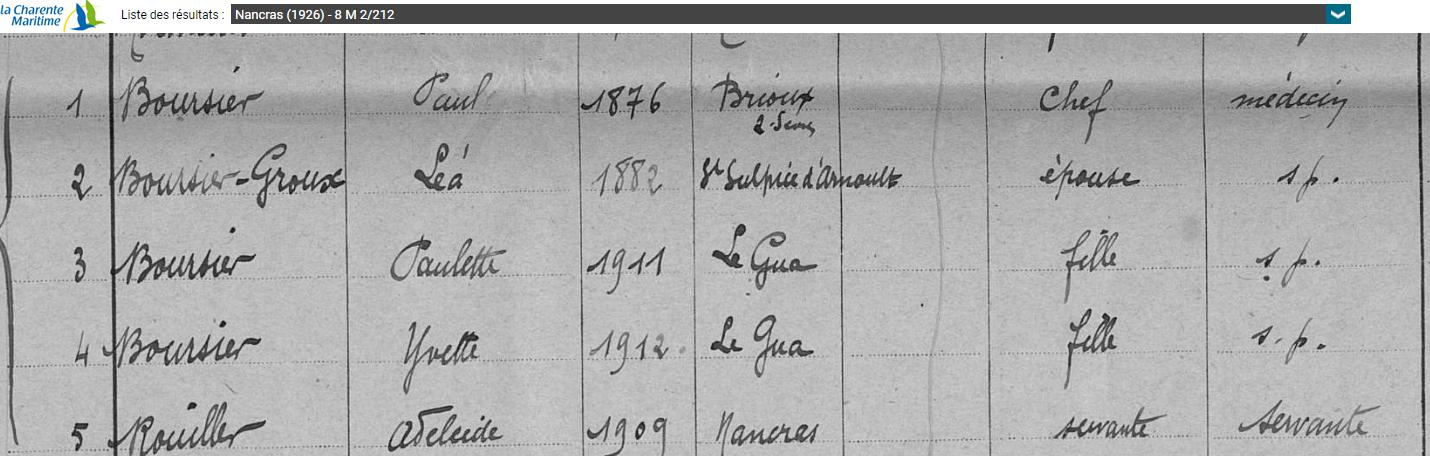 la Charente
Maritime
Liste des résultats : Nancras (1926) - 8 M 2/212
1 Boursier Paul 1876 Brioux Chef médecin
2-Sèvres
2 Boursier-Groux Léa 1882 St Sulpice d'Arnoult épouse s p.
3 Boursier Paulette 1911 Le Gua fille s p.
4 Boursier Yvette 1912. Le Gua fille s. p.
5 Rouiller Adeleide 1909 Nancras servante servante